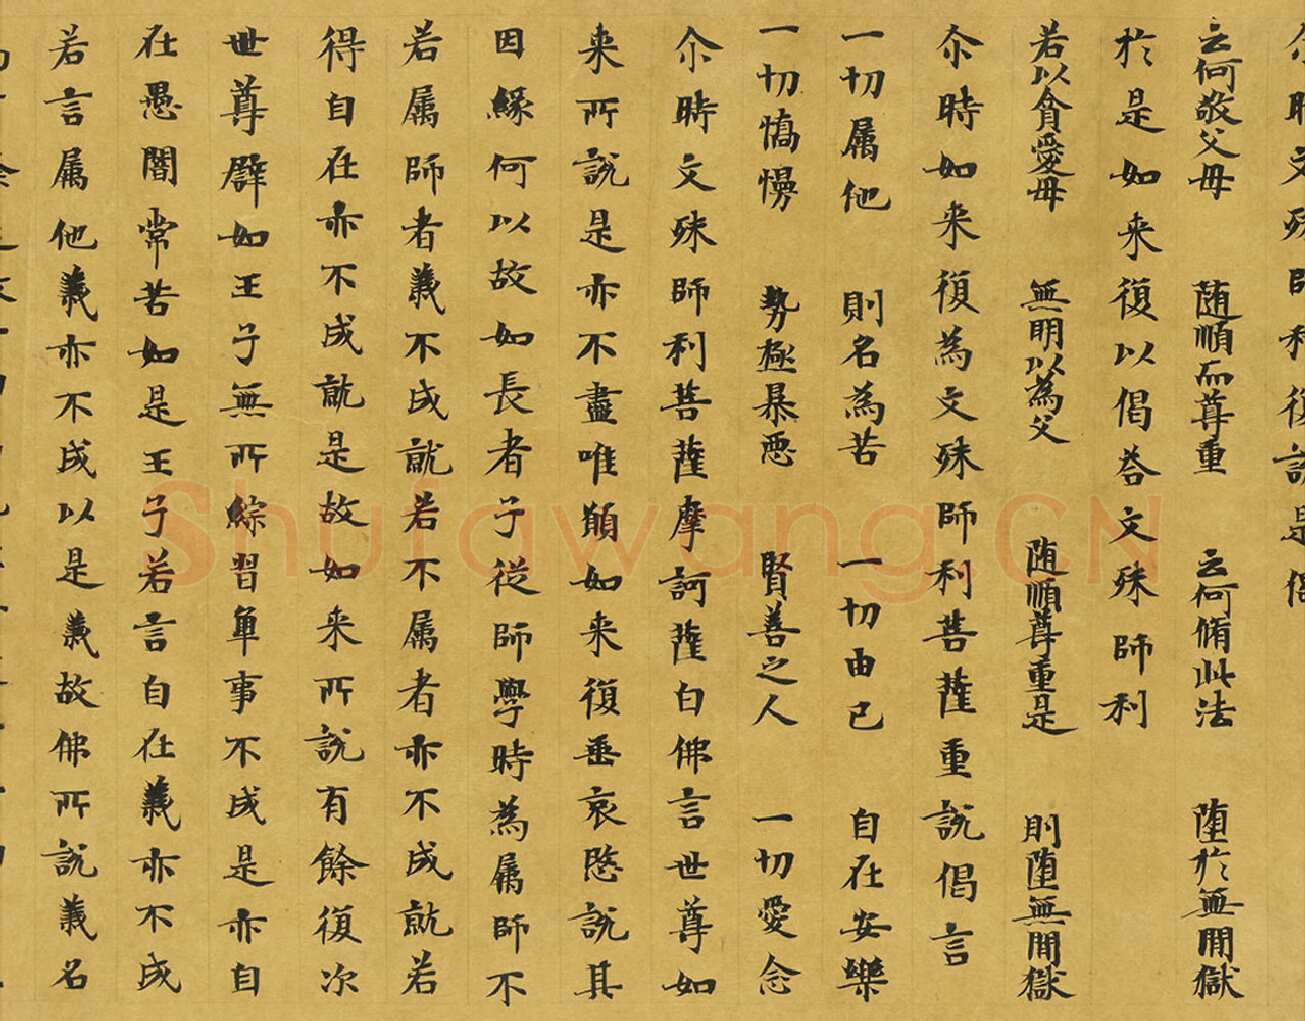 尒時文殊師利復說是偈
云何敬父母　随順而尊重　云何脩此法　堕於無間獄
於是如来復以偈荅文殊師利
若以貪愛母　無明以為父　随順尊重是　則堕無間獄
尒時如来復為文殊師利菩薩重說偈言
一切属他　則名為苦　一切由己　自在安樂
一切憍慢　勢極暴惡　賢善之人　一切愛念
尒時文殊師利菩薩摩訶薩白佛言世尊如
来所說是亦不盡唯願如来復垂哀愍說其
因緣何以故如長者子從師學時為属師不
若属師者義不成就若不属者亦不成就若
得自在亦不成就是故如来所說有餘復次
世尊譬如王子無所綜習觸事不成是亦自
在愚闇常苦如是王子若言自在義亦不成
若言属他義亦不成以是義故佛所說義名
Shufawang.CN